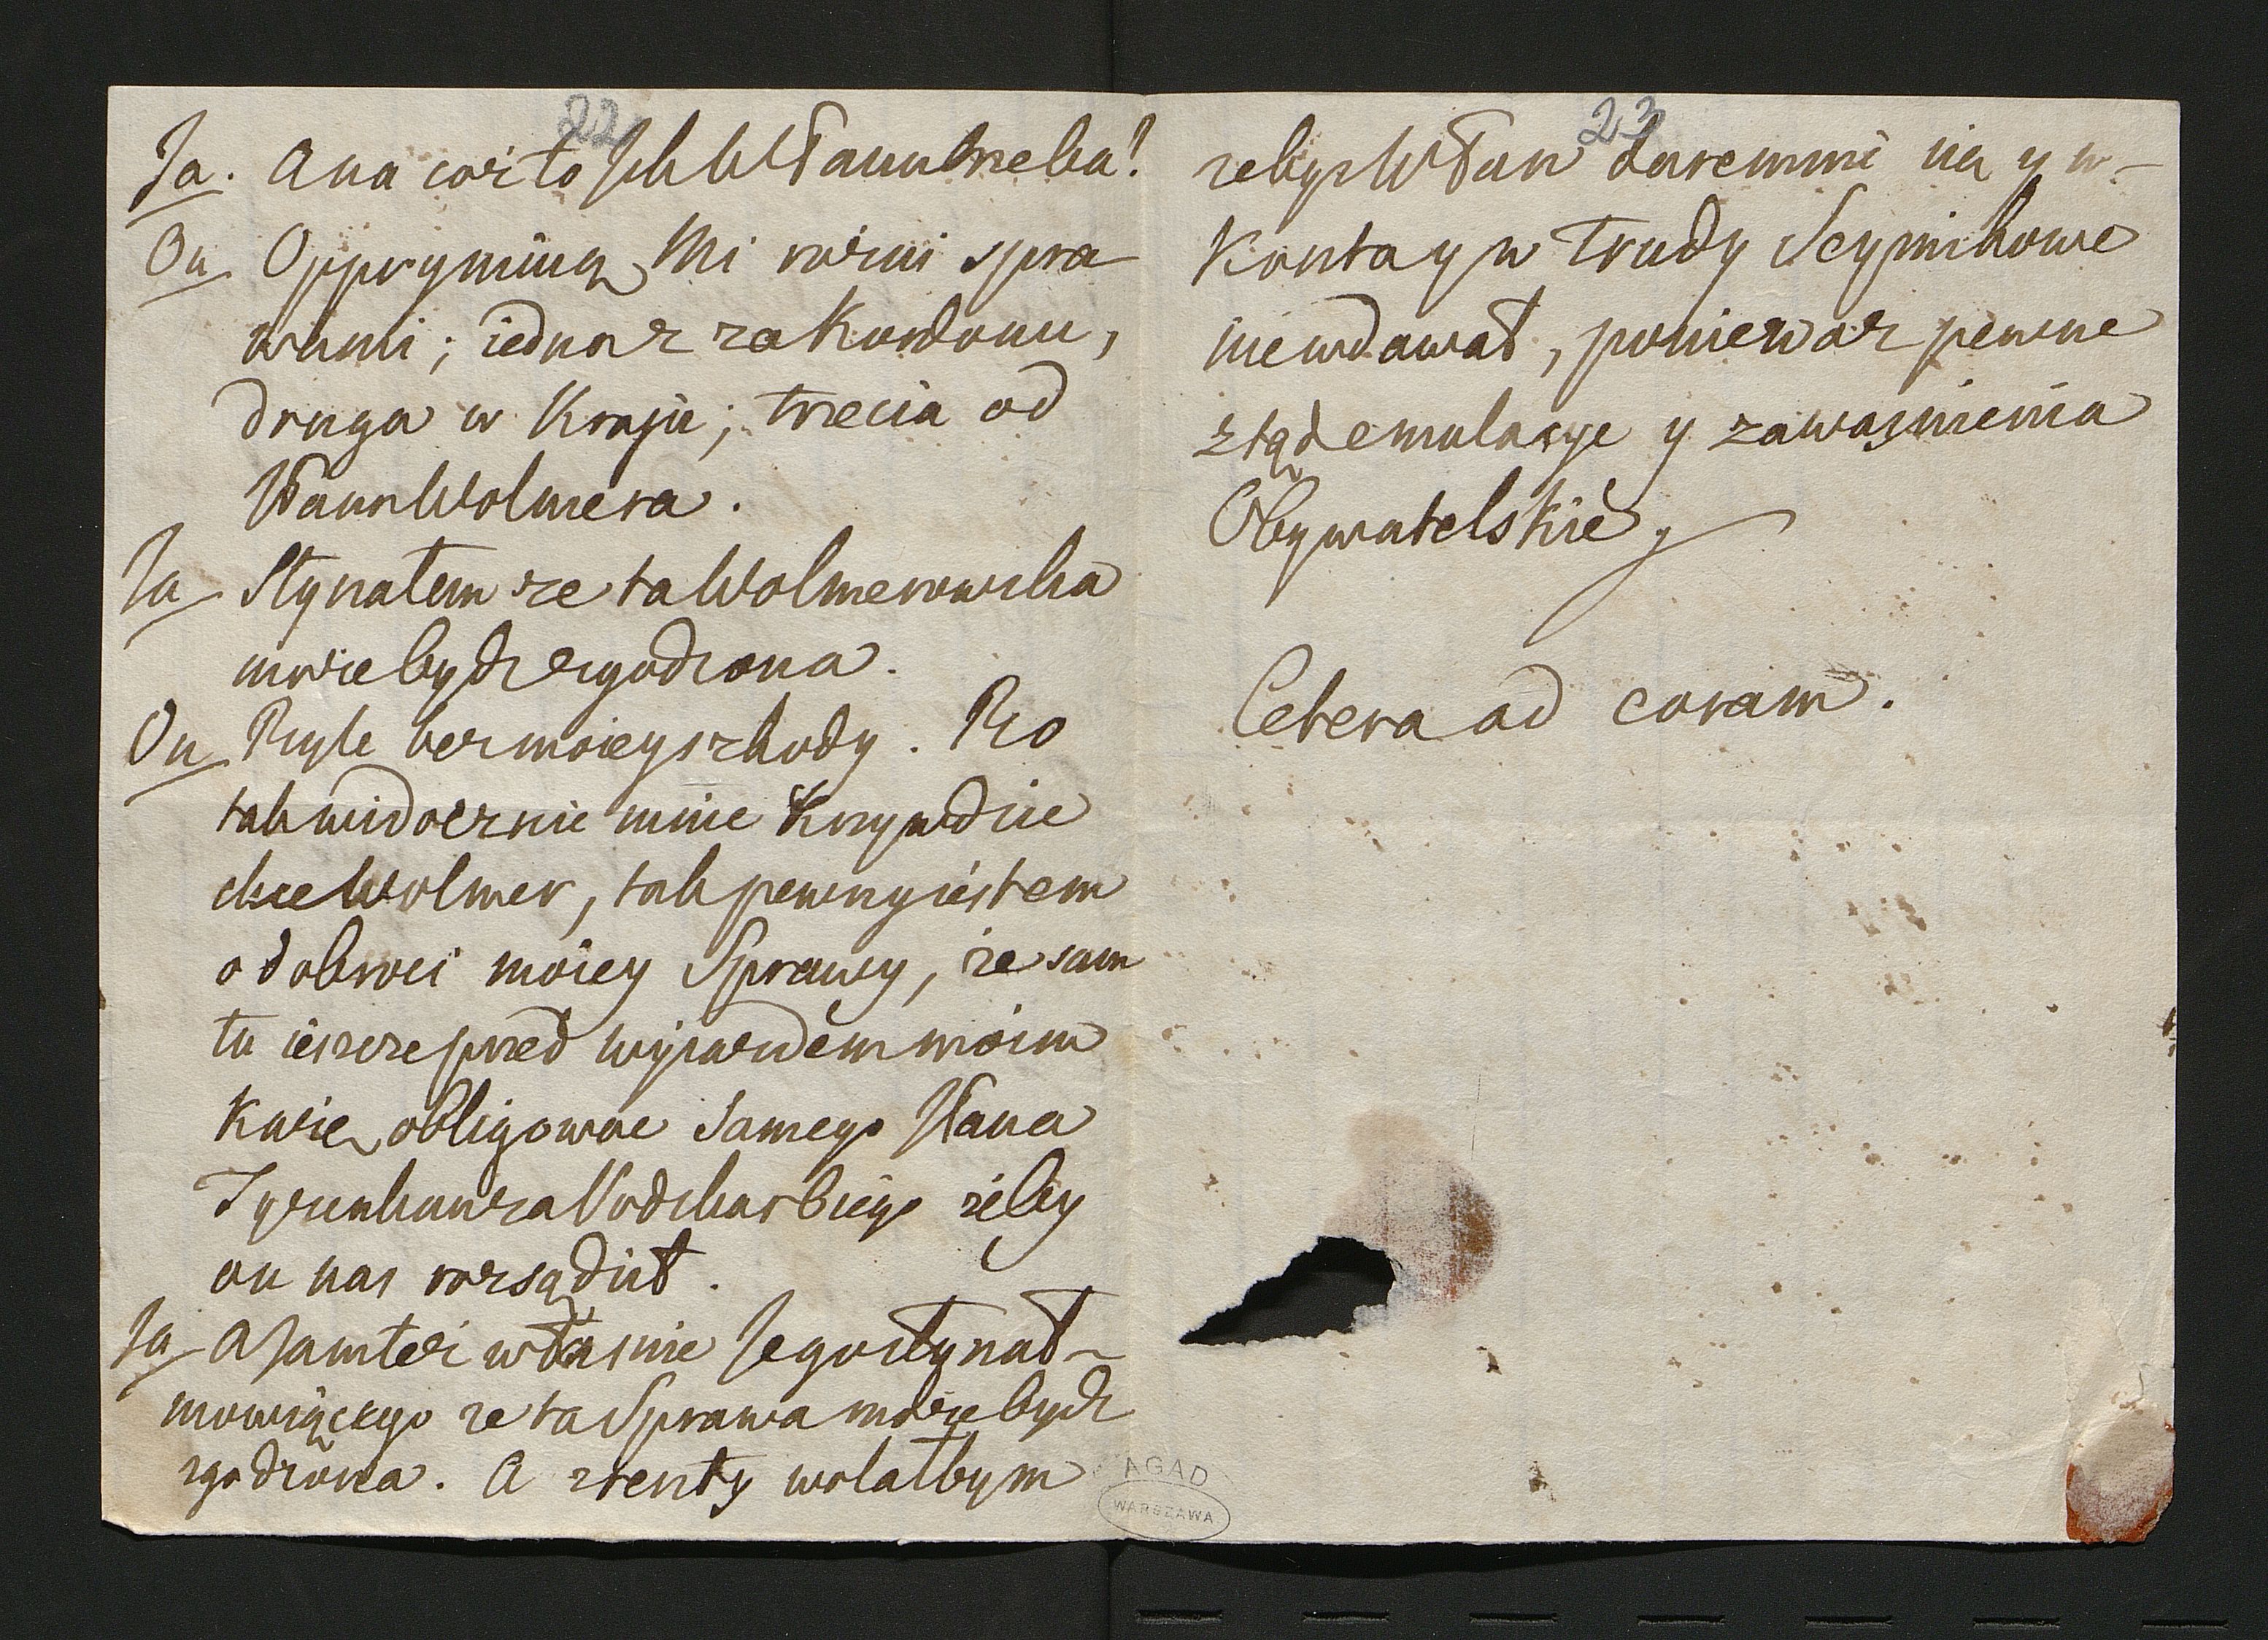 22
Ja. A na coż to Ich WPanu trzeba!
On Opprymuią Mi rożni spra
wami; iedna z za Kordonu,
druga w Kraju; trzecia od
Pana Wolmera.
Ja Słyszałem że ta Wolmerowska
może bydz zgodzona.
On Byle bez moiey szkody. Bo
tak widocznie mnie Krzywdzic
chce Wolmer, tak pewny iestem
o dobroci moiey Sprawy, że sam
tu ieszcze przed wyiazdem moim
każę obligowac samego Pana
Tyzenhauza Podskarbiego żeby
on nas rozsądził.
Ja A Jam też własnie Jego słyszał
mowiącego że ta Sprawa może bydz
zgodzona. A zreszty wolałbym
23
żebys WPan daremnie się y w
Koszta y w Trudy Seymikowe
nie wdawał, ponieważ pewne
ztąd emulacye y zawaśnienia
Obywatelskie
Cetera ad coram.
AGAD
WARSZAWA